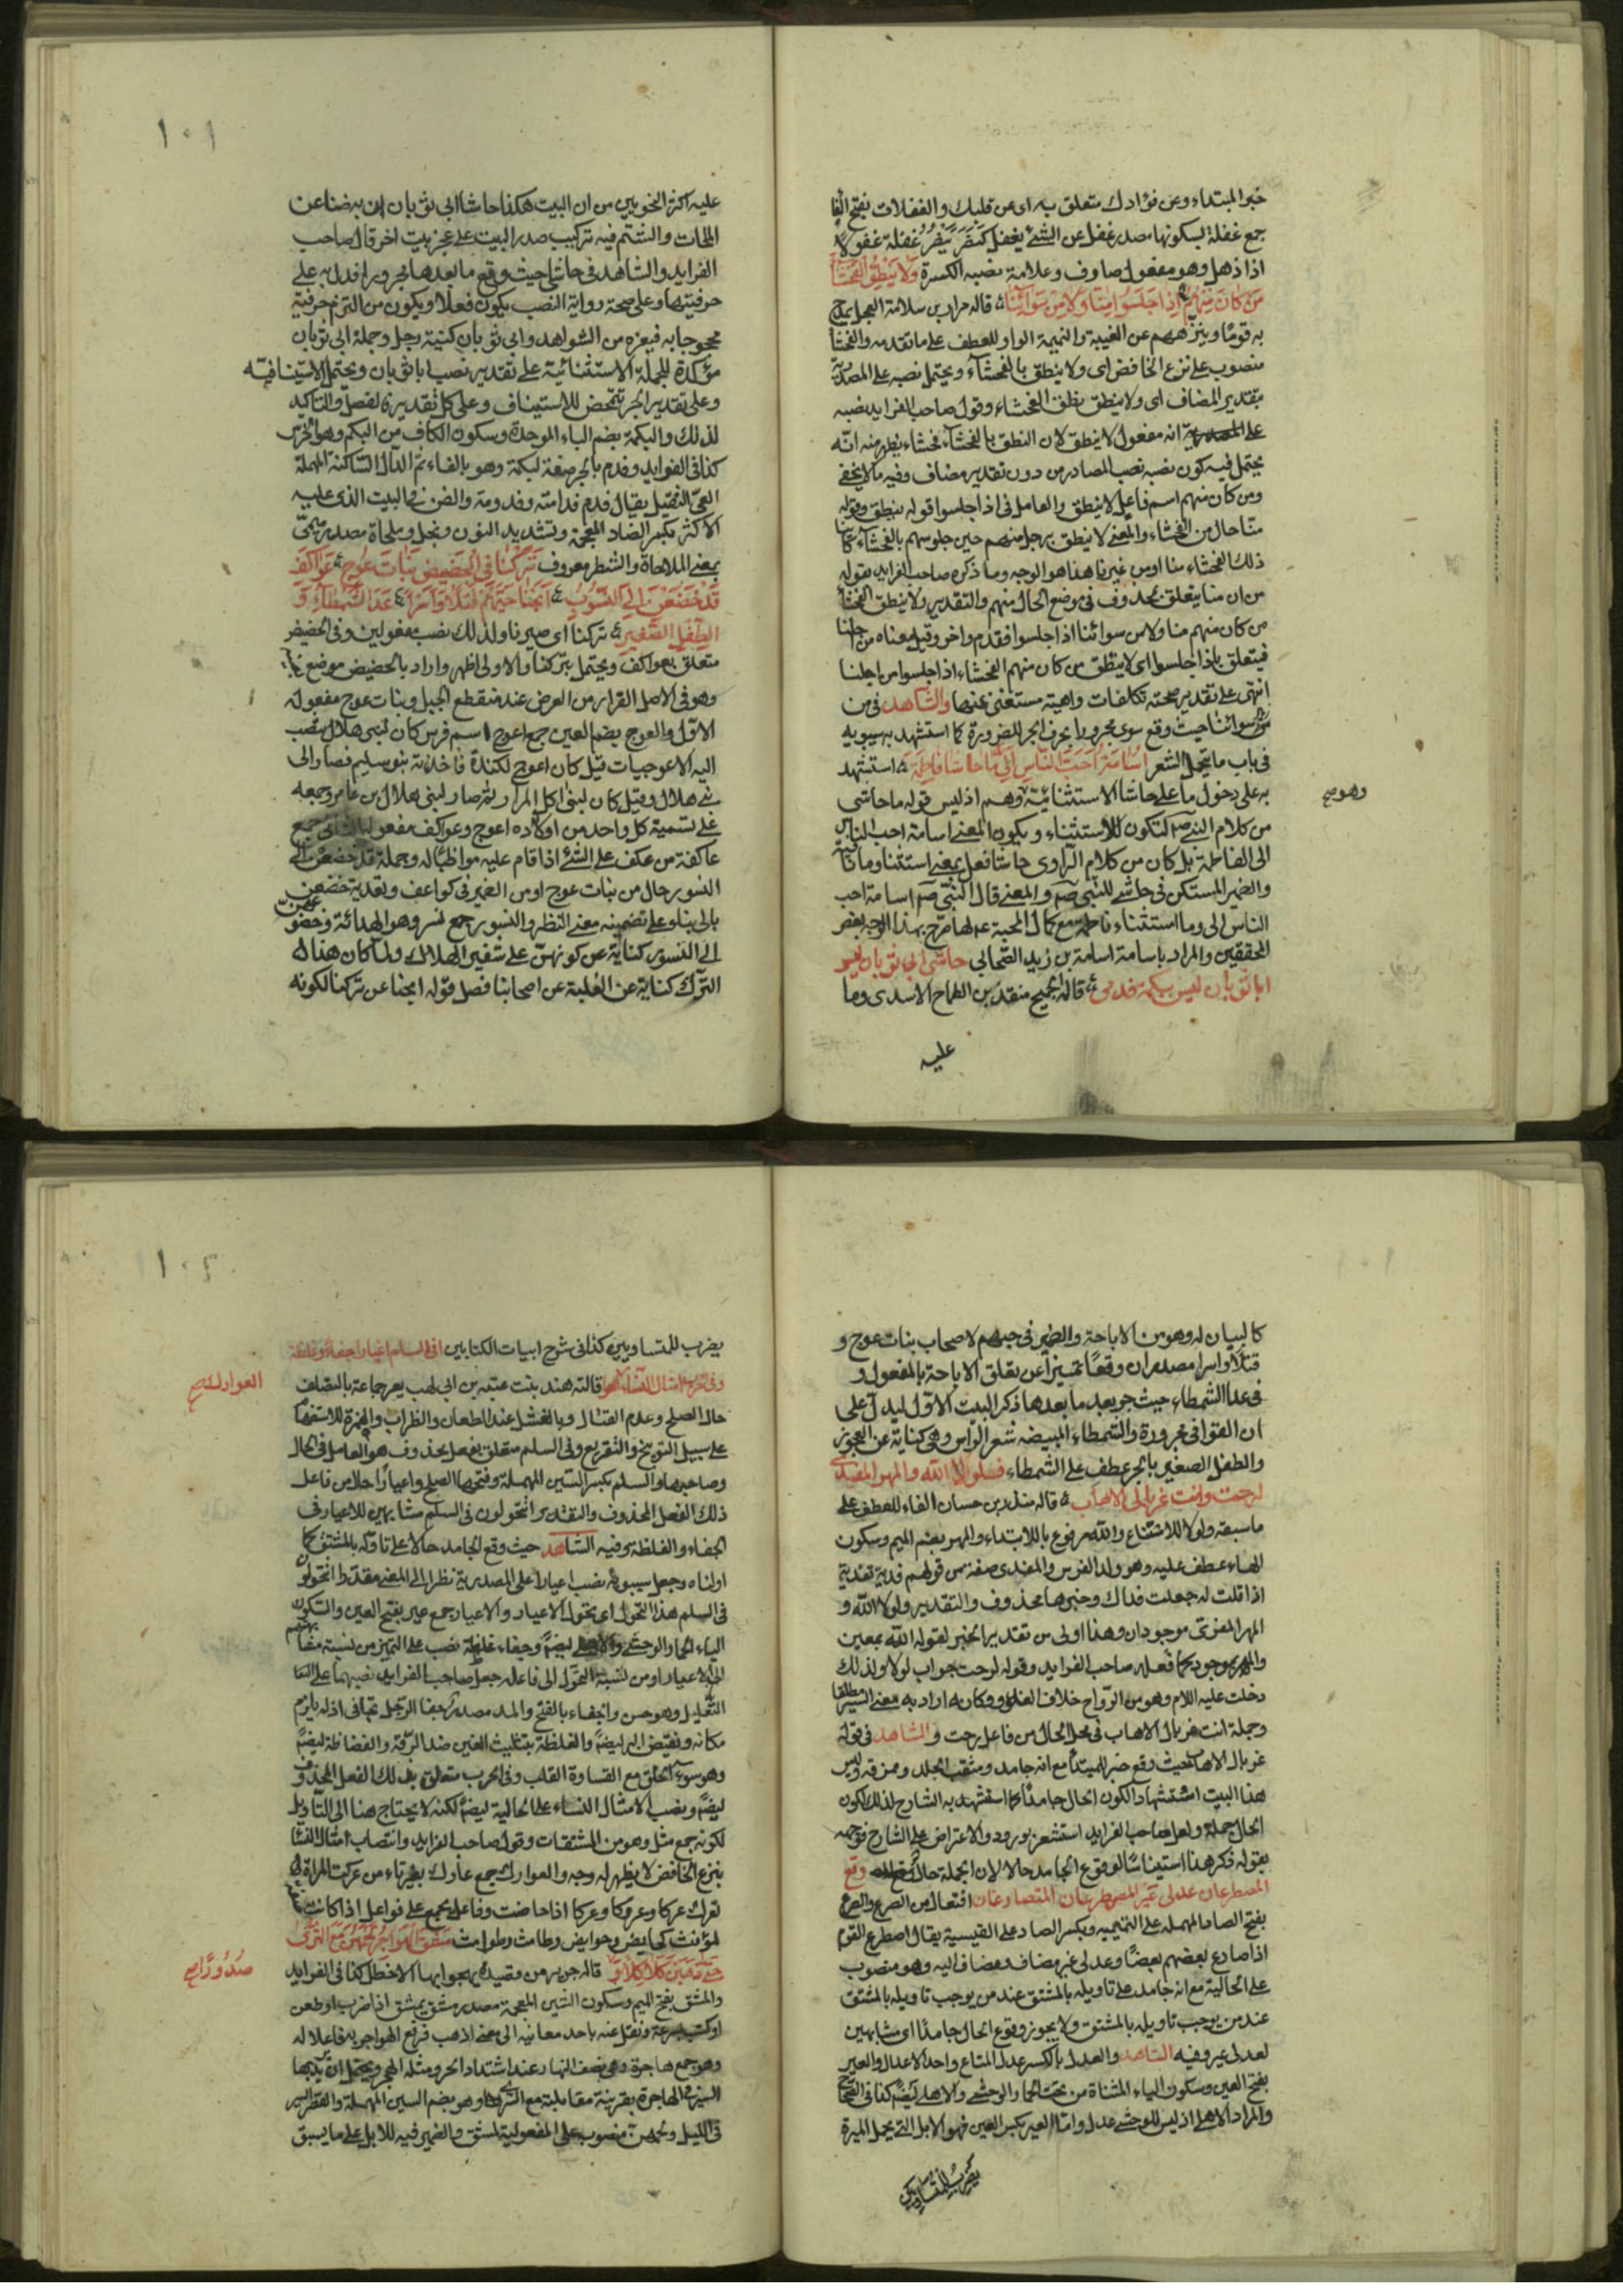 خبر المبتداء وعن فؤادك متعلق به اى عن قلبك والغفلات بفتح الفا
جمع غفلة بسكونها مصدر غفل عن الشئ يغفل كنفر ينفر غفلة غفولا
اذا ذهل وهو مفعول صاوف وعلامة نصبه الكسرة ولا ينطق الفحشاء
من كان منهم اذا جلسوا منا ولا من سوائنا قاله مرار بن سلامة العجلى يمدح
به قوما وينزههم عن الغيبة والنميمة الواو للعطف على ما تقدمه والفحشا
منصوب على نزع الخافض اى ولا ينطق بالفحشاء ويحتمل نصبه على المصدرية
بتقدير المضاف اى ولا ينطق نطق الفحشاء وقول صاحب الفرايد نصبه
على المصدرية انه مفعول لا ينطق لان النطق بالفحشاء فحشاء يظهر منه انه
يحتمل فيه كون نصبه نصب المصادر من دون تقدير مضاف وفيه ما لا يخفى
ومن كان منهم اسم فاعل لا ينطق والعامل فى اذا جلسوا قوله ينطق وقوله
منا حال من الفحشاء والمعنى لا ينطق رجل منهم حين جلوسهم بالفحشاء كائنا
ذلك الفحشاء منا او من غيرنا هذا هو الوجه وما ذكره صاحب الفرايد بقوله
من ان منا يتعلق بمحذوف فى موضع الحال منهم والتقدير ولا ينطق الفحشا
من كان منهم منا ولا من سوائنا اذا جلسوا فقدم واخر وقيل معناه من اجلنا
فيتعلق باذا جلسوا اى لا ينطق من كان منهم الفحشاء اذا جلسوا من اجلنا
انتهى على تقدير صحته تكلفات واهية مستغنى عنها والشاهد فى من
سوائنا حيث وقع سوى مجرورا بحرف الجر للضرورة كما استشهد به سيبويه
فى باب ما يحتمل الشعر اسامة احب الناس الى ما حاشا فاطمة استشهد
به على دخول ما على حاشا الاستثنائية وهم اذ ليس قوله ما حاشى
وهو صح
من كلام النبى صم لتكون للاستثناء ويكون المعنى اسامة احب الناس
الى الفاطمة بل كان من كلام الراوى حاشا فعل بمعنى استثنا وما نافية
والضمير المستكن فى حاشى للنبى صم والمعنى قال النبى صم اسامة احب
الناس الى وما استثناء فاطمة مع كمال المحبة عم لها صرح بهذا الوجه بعض
المحققين والمراد باسامة اسامة بن زيد الصحابى حاشى ابى ثوبان
ابا ثوبان ليس ببكمة فدم قاله الجميح منقذ بن الطماح الاسدى وما
عليه
١٠١
عليه اكثر النحويين من ان البيت هكذا حاشا ابى ثوبان ان به ضنا عن
الملحات والشتم فيه تركيب صدر البيت على عجز بيت اخر قال صاحب
الفرايد والشاهد فى حاشى حيث وقع ما بعدها مجرورا فدل به على
حرفيتها وعلى صحة رواية النصب يكون فعلا ويكون من التزم حرفية
محجوجا به فيعزه من الشواهد وابى ثوبان كنية رجل وجملة ابى ثوبان
مؤكدة للجملة الاستثنائية على تقدير نصب ابا ثوبان ويحتمل الاستينافية
وعلى تقدير الجر تتمحض للاستيناف وعلى كل تقدير والتاكيد
لذلك والبكمة بضم الباء الموحدة وسكون الكاف من البكم وهو الخرس
كذا فى الفوايد وفدم بالجر صفة لبكمة وهو بالفاء ثم الدال الساكنة المهملة
العى الثقيل يقال فدم فدامة وفدومة والضن فى البيت الذى عليه
الاكثر بكسر الضاد المعجمة وتشديد النون وبخل وملحاة مصدر ميمى
بمعنى الملاحاة والشطر معروف تركنا فى الحضيض بنات عوج عواكف
قد خضعن الى النسور ابحنا حيهم قتلا واسرا عدا الشمطاء و
الطفل الصغير تركنا اى صيرنا ولذلك نصب مفعولين وفى الحضيض
متعلق بعواكف ويحتمل بتركنا والاولى اظهر واراد بالحضيض موضع
وهو فى الاصل القرار من العرض عند منقطع الجبل وبنات عوج مفعوله
الاول والعوج بضم العين جمع اعوج اسم فرس كان لبنى هلال ينسب
اليه الاعوجيات قيل كان اعوج لكندة فاخذته بنو سليم فصار الى
بنى هلال وقيل كان لبنى اكل المرار ثم صار لبنى هلال بن عامر وجمعه
على تسمية كل واحد من اولاده اعوج وعواكف مفعوله الثانى جمع
عاكفة من عكف على الشئ اذا قام عليه مواظبا له وجملة قد خضعن الى
النسور حال من بنات عوج او من الضمير فى كواعف وتعدية خضعن
بالى بناء على تضمينه معنى النظر والنسور جمع نسر وهو الهدأة وخضوعهن
الى النسور كناية عن كونهن على شفير الهلاك ولما كان هذا
الترك كناية عن الغلبة عن اصحابنا فصل قوله ابحنا عن تركنا لكونه
كالبيان له وهو من الاباحة والضمير فى حيهم لاصحاب بنات عوج و
قتلا واسرا مصدران وقعا تمييزا عن تعلق الاباحة بالمفعول و
فى عدا الشمطاء حيث جر بعد ما بعدها ذكر البيت الاول ليدل على
ان القوافى مجرورة والشمطاء المبيضة شعر الراس وهى كناية عن العجوز
والطفل الصغير بالجر عطف على الشمطاء فلولا الله والمهر المفدى
لرحت وانت غربال الاهاب قاله منذر بن حسان الفاء للعطف على
ما سبقه ولولا للامتناع والله مرفوع بالابتداء والمهر بضم الميم وسكون
الهاء عطف عليه وهو ولد الفرس والمفدى صفة من قولهم فديته تفدية
اذا قلت له جعلت فداك وخبرها محذوف والتقدير ولولا الله و
المهر المفدى موجودان وهذا اولى من تقدير الخبر لقوله الله بمعين
والمهر موجود كما فعله صاحب الفرايد وقوله لرحت جواب لولا ولذلك
دخلت عليه اللام وهو من الرواح خلاف الغدو وكانه اراد به معنى السير مطلقا
وجملة انت غربال الاهاب فى محل الحال من فاعل رحت والشاهد فى قوله
غربال الاهاب حيث وقع خبر للمبتدأ مع انه جامد ومثقب الجلد وممزقه وليس
هذا البيت استشهادا لكون الحال جامدا كما استشهد به الشارح لذلك لكون
الحال جملة ولعل صاحب الفرايد استشعر بورود الاعتراض على الشارح فوجهه
بقوله ذكر هذا استيناسا لوقوع الجامد حالا لان الجملة حال وقع
المصطرعان عدلى عير المصطرعان المتصارعان افتعال من الصرع والصرع
بفتح الصاد المهملة على التميمية وبكسر الصاد على القيسية يقال اصطرع القوم
اذا صارع بعضهم بعضا وعدلى عير مضاف ومضاف اليه وهو منصوب
على الحالية مع انه جامد على تاويله بالمشتق عند من يوجب تاويله بالمشتق
عند من يوجب تاويله بالمشتق ولا يجوز وقوع الحال جامدا اى مشابهين
لعدلى عير وفيه الشاهد والعدل بالكسر عدل المتاع واحد الاعدال والعير
بفتح العين وسكون الياء المثناة من تحت الحمار الوحشى والاهلى ايضا كذا فى الصحاح
والمراد الاهلى اذ ليس للوحشى عدل واما العير بكسر العين فهو الابل التى يحمل الميرة
يضرب للمتساويين
١٠٢
يضرب للمتساويين كذا فى شرح ابيات الكتابين افى السلم اعيارا جفاء وغلظة
وفى الحرب امثال النساء قالته هند بنت عتبة بن ابى لهب يعير جماعة بالتصلف
العوارك صح
حال الصلح وعدم القتال وبالفشل عند الطعان والظراب والهمزة للاستفهام
على سبيل التوبيخ والتقريع وفى السلم متعلق بفعل محذوف هو العامل فى الحال
وصاحبها والسلم بكسر السين المهملة وفتحها الصلح واعيارا حال من فاعل
ذلك الفعل المحذوف والتقدير اتتحولون فى السلم مشابهين للاعيار فى
الجفاء والغلظة وفيه الشاهد حيث وقع الجامد حالا على تاوله بالمشتق كما
اولناه وجعل سيبويه نصب اعيارا على المصدرية نظرا الى المعنى مقدرا اتتحولون
فى السلم هذا التحول اى تحول الاعيار والاعيار جمع عير بفتح العين والسكون
الياء الحمار الوحشى والاهلى ايضا وجفاء غلظة نصب على التميز من نسبة مشابهتهم
الى الاعيار او من نسبة التحول الى فاعله جعل صاحب الفرايد نصبهما على
التعليل وهو حسن والجفاء بالفتح والمد مصدر جفا الرجل تجافى اذ لم يلزم
مكانه ونقيض البر ايضا والغلظة بتثليث الغين ضد الرقة والفضاظة ايضا
وهو سوء الخلق مع القساوة القلب وفى الحرب متعلق بذلك الفعل المحذوف
ايضا ونصب الامثال النساء على الحالية ايضا لكنه لا يحتاج هنا الى التاويل
لكونه جمع مثل وهو من المشتقات وقول صاحب الفرايد وانتصاب امثال النسا
بنزع الخافض لا يظهر له وجه والعوارك جمع عارك بغير تاء من عركت المراة
تعرك عركا وعروكا وعركا اذا حاضت وفاعل يجمع على فواعل اذا كانت
لمؤنث كحايض وحوايض وطامث وطوامث مشق الهواجر لحمهن مع السرى
حتى ذهبن كلاكلا و قاله جرير من قصيدة يهجو بها الاخطل كذا فى الفرايد
صدورا صح
والمشق بفتح الميم وسكون الشين المعجمة مصدر مشق يمشق اذا ضرب او طعن
او كتب بسرعة ونقل عنه باحد معانيه الى معنى اذهب فرفع الهواجر به فاعلا له
وهو جمع هاجرة وهى نصف النهار عند اشتداد الحر ومثله الهجر ويحتمل ان يريد بها
السير فى الهاجرة بقرينة مقابلته مع السرى وهو بضم السين المهملة والقصر السير
فى الليل ولحمهن منصوب على المفعولية لمشق والضمير فيه للابل على ما يسبق